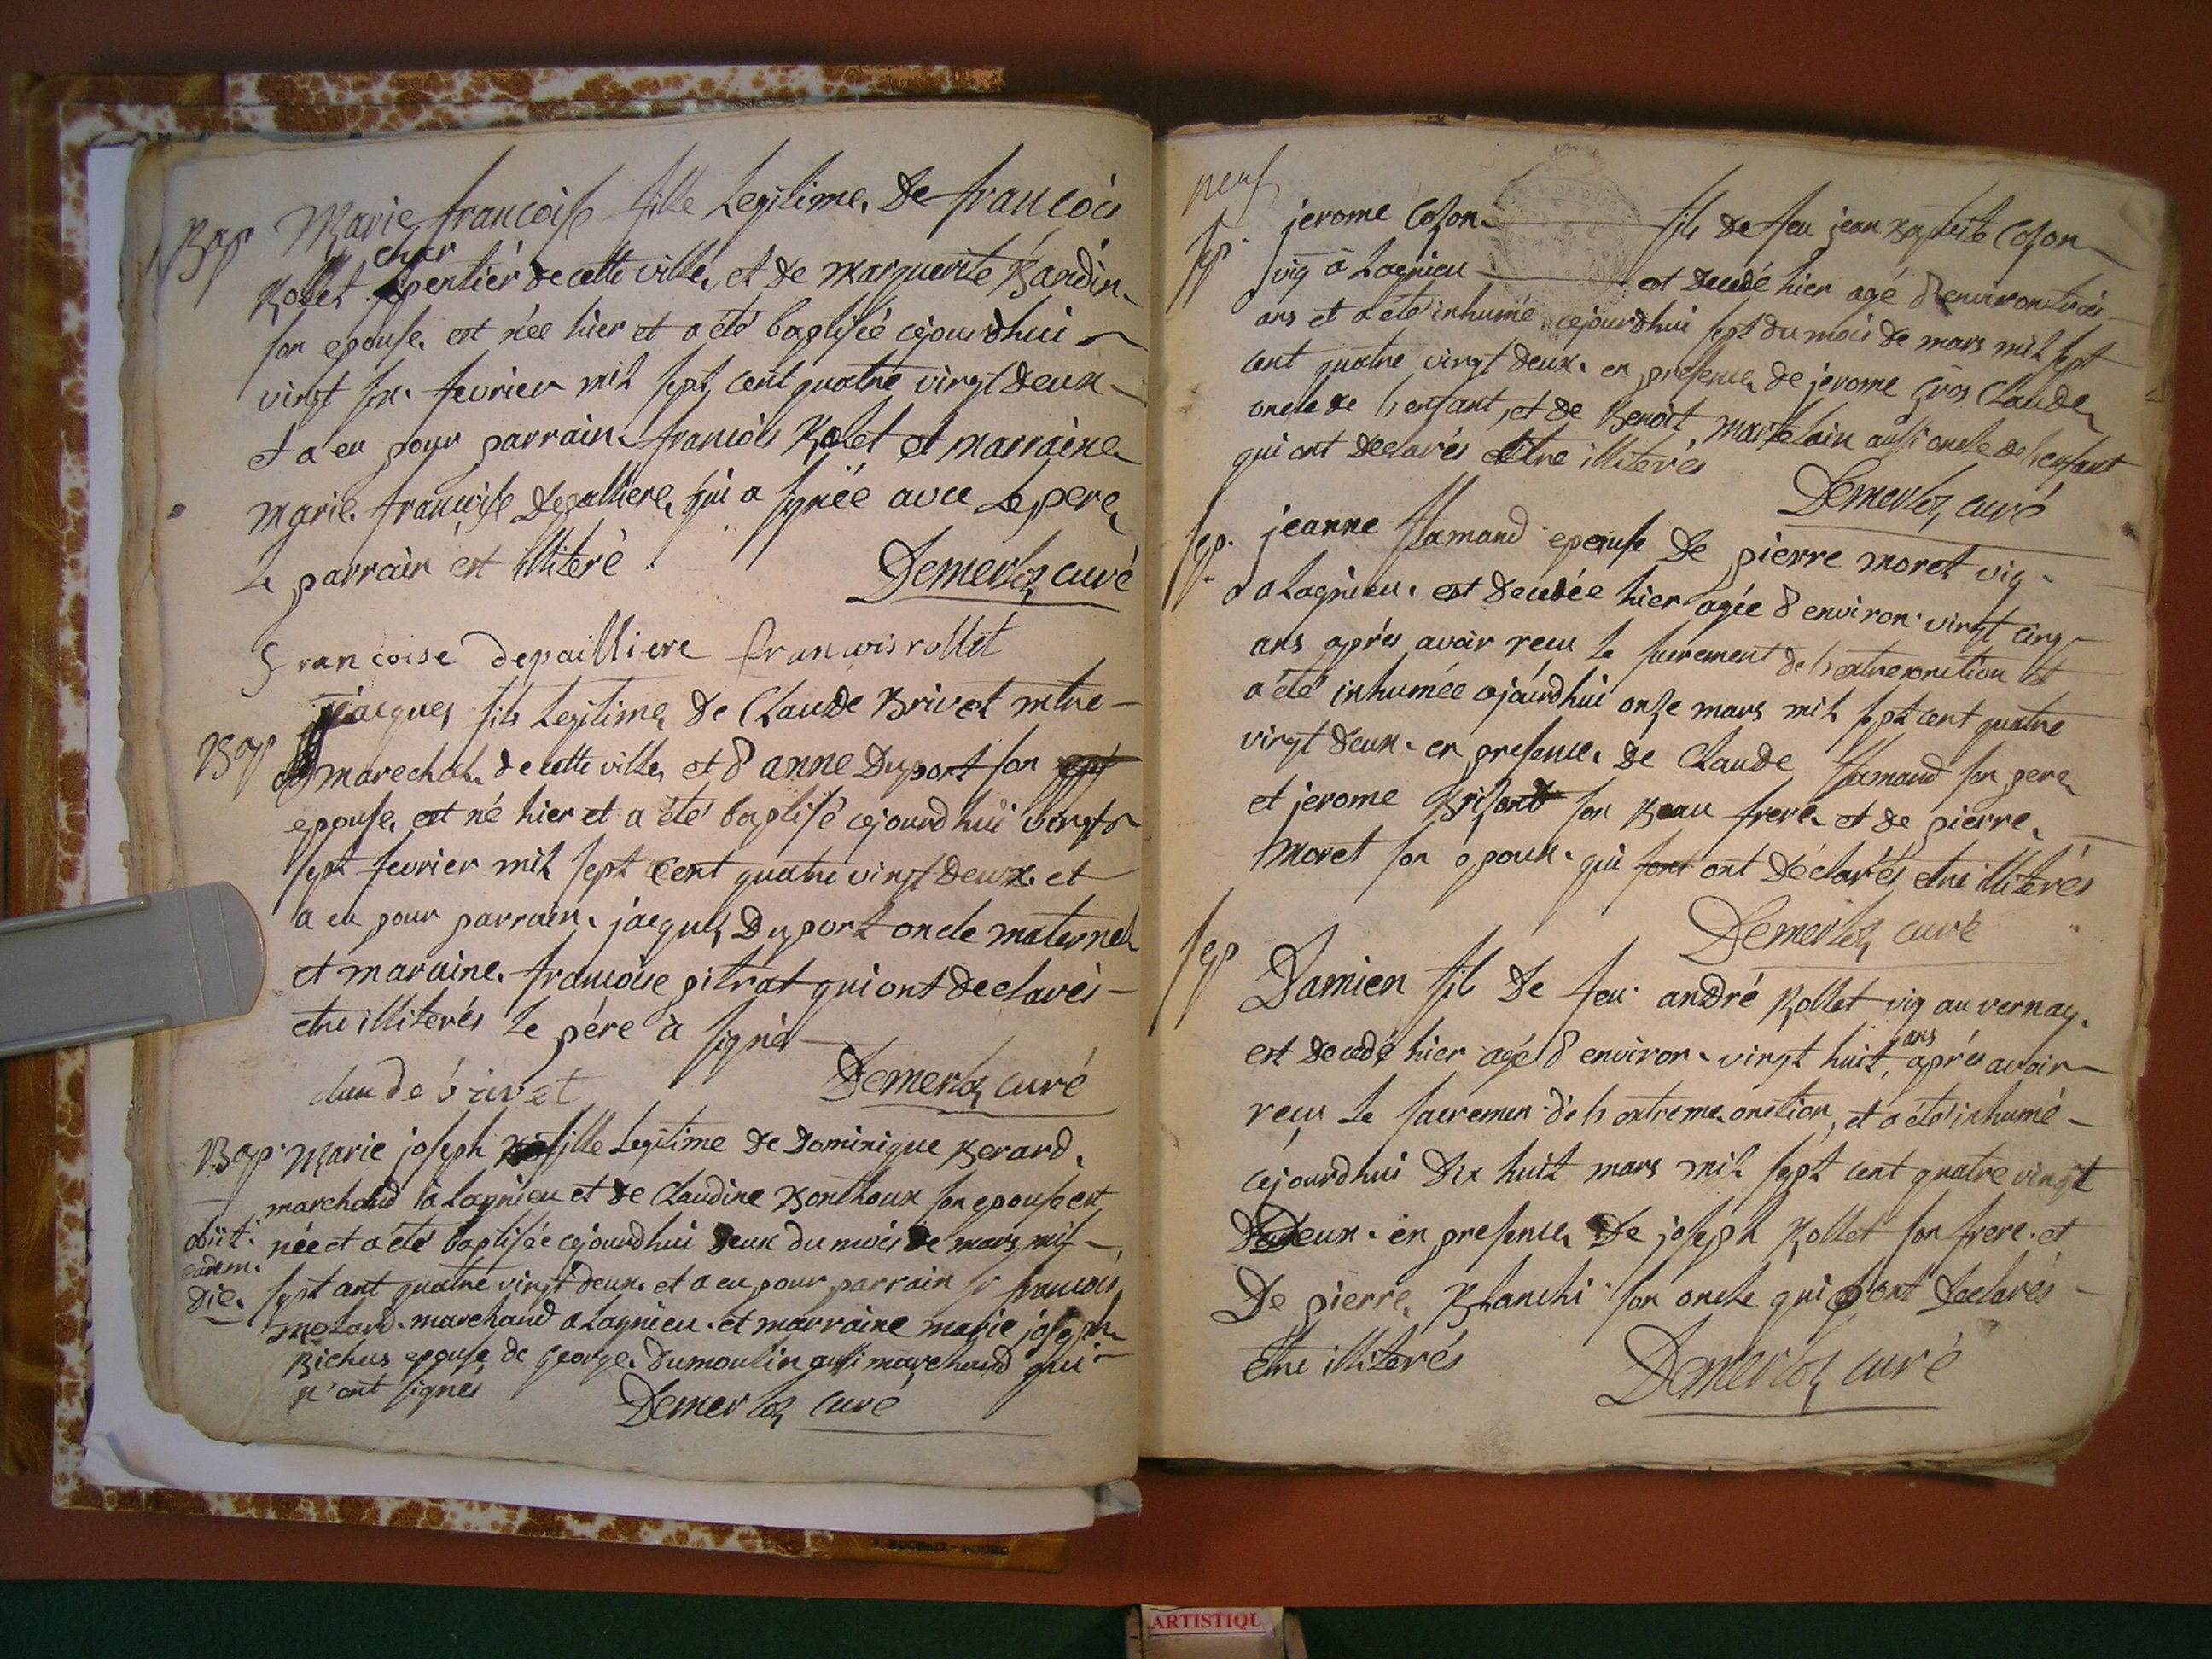 Bap Marie francoise fille Legitime de francois
Rollet charpentiér de cette ville, et de Marguerite Bardin
son epouse est née hier et a été baptisée cejourdhui
vingt six fevrier mil sept cent quatre vingt deux
et a eu pour parrain francois Rolet et marraine
Marie francoise Depalliere qui a signée avec Le pere
Le parrain est illiteré
Demerloz curé
francoise depailliere francois rollet
Bap jacques fils Legitime de Claude Brivet mtre
marechal de cette ville et d'anne Duport son
epouse est né hier et a été baptisé cejourd'hui vingt
sept fevrier mil sept cent quatre vingt deux et
a eu pour parrain jacques Duport oncle maternel
et maraine francoise pitrat qui ont declarés
etre illiterés Le pére à signé
claude brivet Demerloz curé
Bap Marie joseph fille Legitime de Dominique Berard
marchand à Lagnieu et de Claudine Bonthoux son epouse est
obiit née et a été baptisée cejourdhui deux du mois de mars mil
eadem sept cent quatre vingt deux et a eu pour parrain sr francois
die molard marchand a Lagnieu et marraine marie joseph
Bichus epouse de george Dumoulin aussi marchand qui
n'ont signés
Demerloz curé
neuf
sep. jerome Cozon fils de feu jean Baptiste Cozon
vig à Lagnieu est decedé hier agé d'environ trois
ans et a été inhumé cejourdhui sept du mois de mars mil sept
cent quatre vingt deux en presence de jerome Gros Claude
oncle de l'enfant, et de Benoit Martelain aussi oncle de l'enfant
qui ont declarés être illiterés
Demerloz curé
sep. jeanne flamand epouse de pierre moret vig
a Lagnieu est decedée hier agée d'environ vingt cinq
ans aprés avoir recu Le sacrement de l'extremonction et
a été inhumée cejourdhui onze mars mil sept cent quatre
vingt deux en presence de Claude flamand son pere
et jerome Brisont son Beau frere et de pierre
Moret son epoux qui sont ont déclarés etre illiterés
Demerloz curé
sep Damien fils de feu andré Rollet vig au vernay
est decedé hier agé d'environ vingt huit ans aprés avoir
reçu Le sacremen de l'extreme onction, et a été inhumé
cejourdhui Dix huit mars mil sept cent quatre vingt
Deux en presence de joseph Rollet son frere et
De pierre Blanchi son oncle qui ont declarés
etre illiterés
Demerloz curé
ARTISTIQU